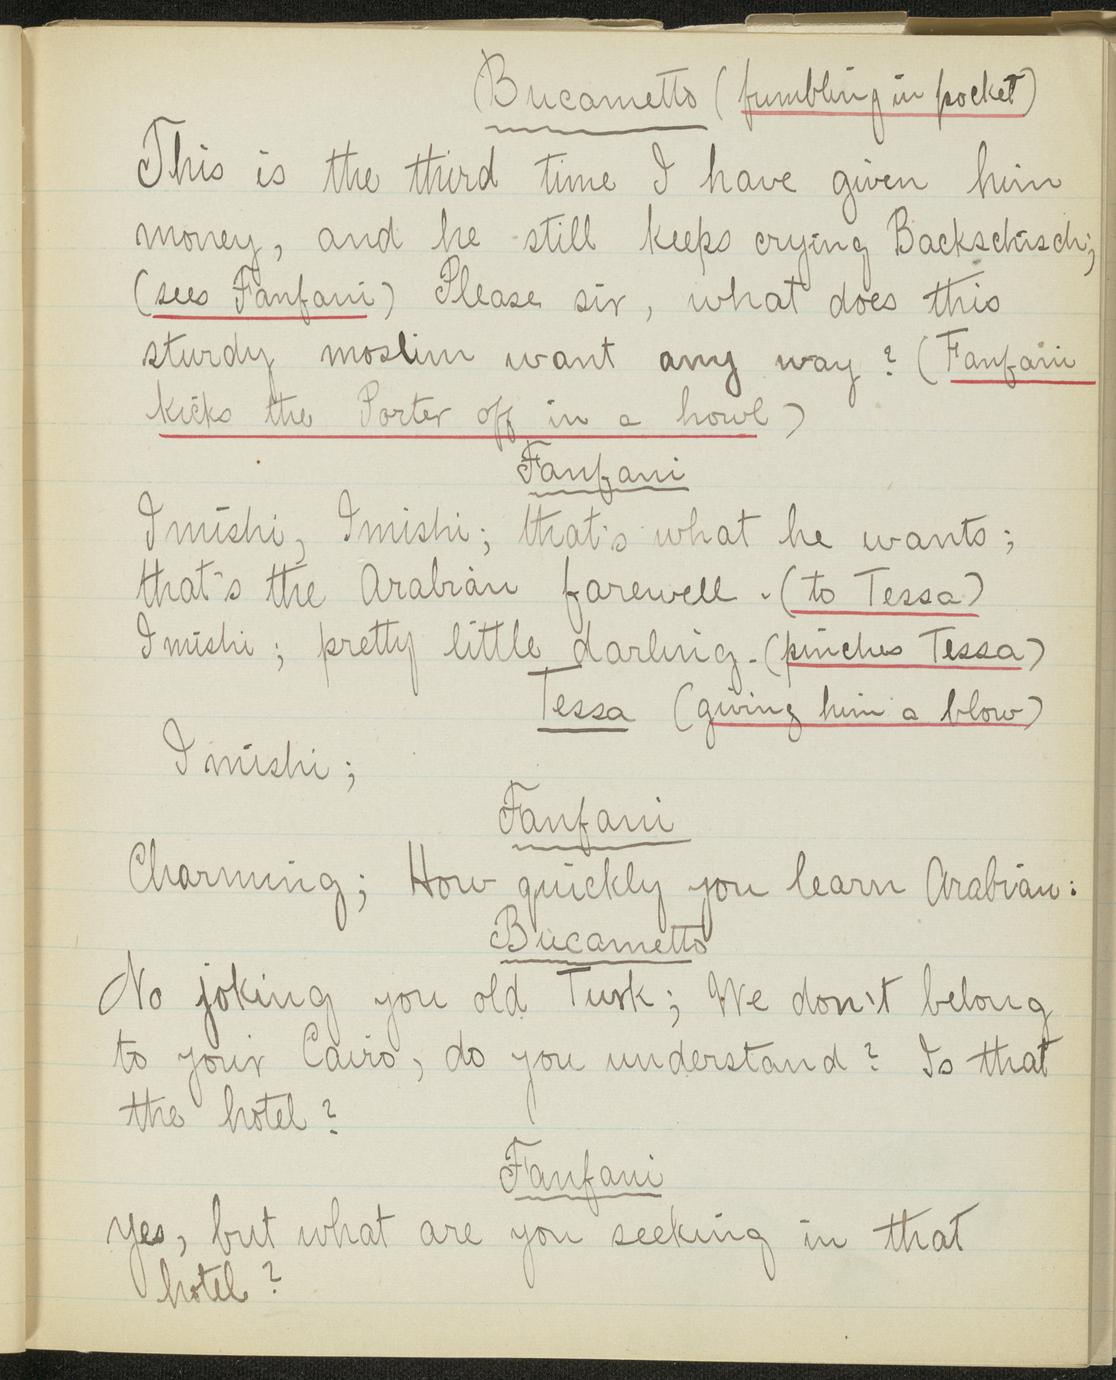 Bucametto (fumbling in pocket)
This is the third time I have given him
money, and he still keeps crying Backschisch;
(sees Fanfani) Please sir, what does this
sturdy moslim want any way? (Fanfani
kicks the Porter off in a howl)
Fanfani
Imishi, Imishi; that's what he wants;
that's the Arabian farewell. (to Tessa)
Imishi; pretty little darling. (pinches Tessa)
Tessa (giving him a blow)
Imishi;
Fanfani
Charming; How quickly you learn Arabian:
Bucametto
No joking you old Turk; We don't belong
to your Cairo, do you understand? Is that
the hotel?
Fanfani
Yes, but what are you seeking in that
hotel?